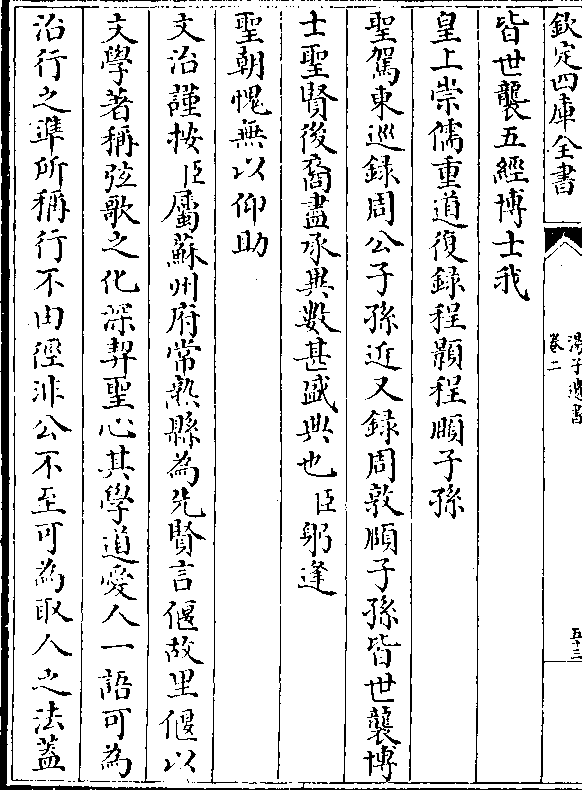 欽定四庫全書
湯子遺書
卷二
五十三
皆世襲五經博士我
皇上崇儒重道復録程顥程頤子孫
聖駕東巡録周公子孫近又録周敦頤子孫皆世襲博
士聖賢後裔盡承典數甚盛典也臣躬逢
聖朝愧無以仰助
文治謹按臣屬蘇州府常熟縣為先賢言偃故里偃以
文學著稱弦歌之化深契聖心其學道愛人一語可為
治行之準所稱行不由徑非公不至可為取人之法葢